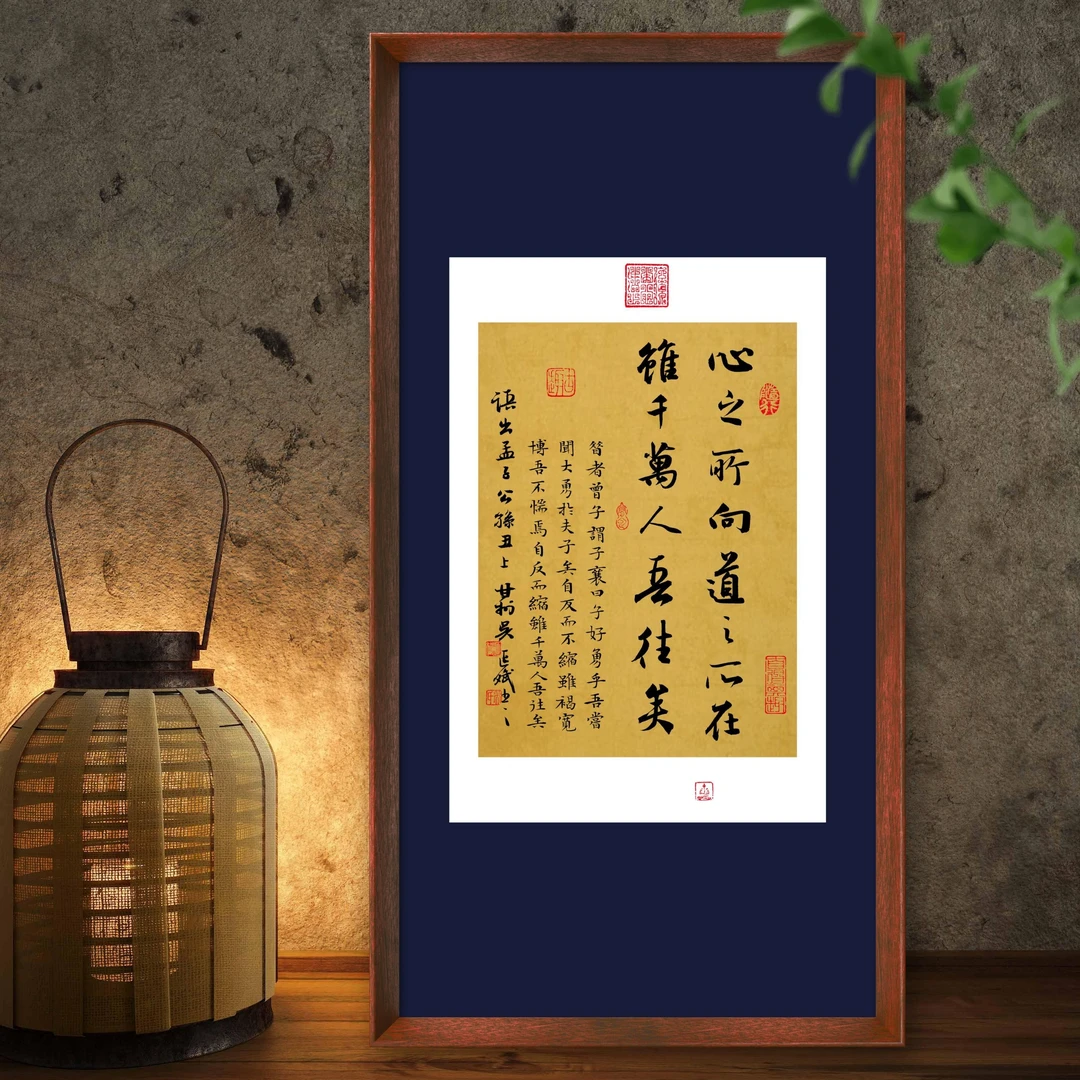 心之所向道之所在
雖千萬人吾往矣
昔者曾子謂子襄曰子好勇乎吾嘗
聞大勇於夫子矣自反而不縮雖褐寬
博吾不惴焉自反而縮雖千萬人吾往矣
語出孟子公孫丑上 吳